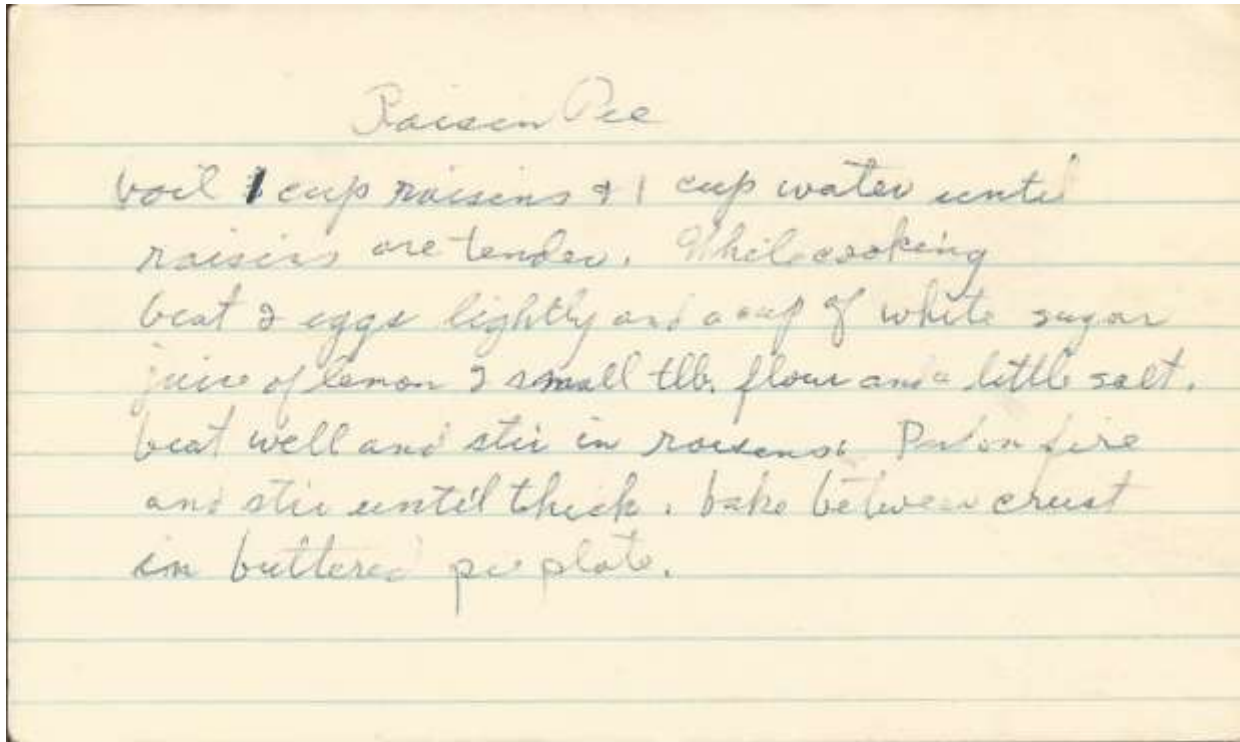 Raisin Pie
boil 1 cup raisins & 1 cup water until
raisins are tender. While cooking
beat 2 eggs lightly and a cup of white sugar
juice of lemon 2 small tlb. flour and a little salt.
beat well and stir in raisens. Put on fire
and stir until thick. bake between crust
in buttered pie plate.